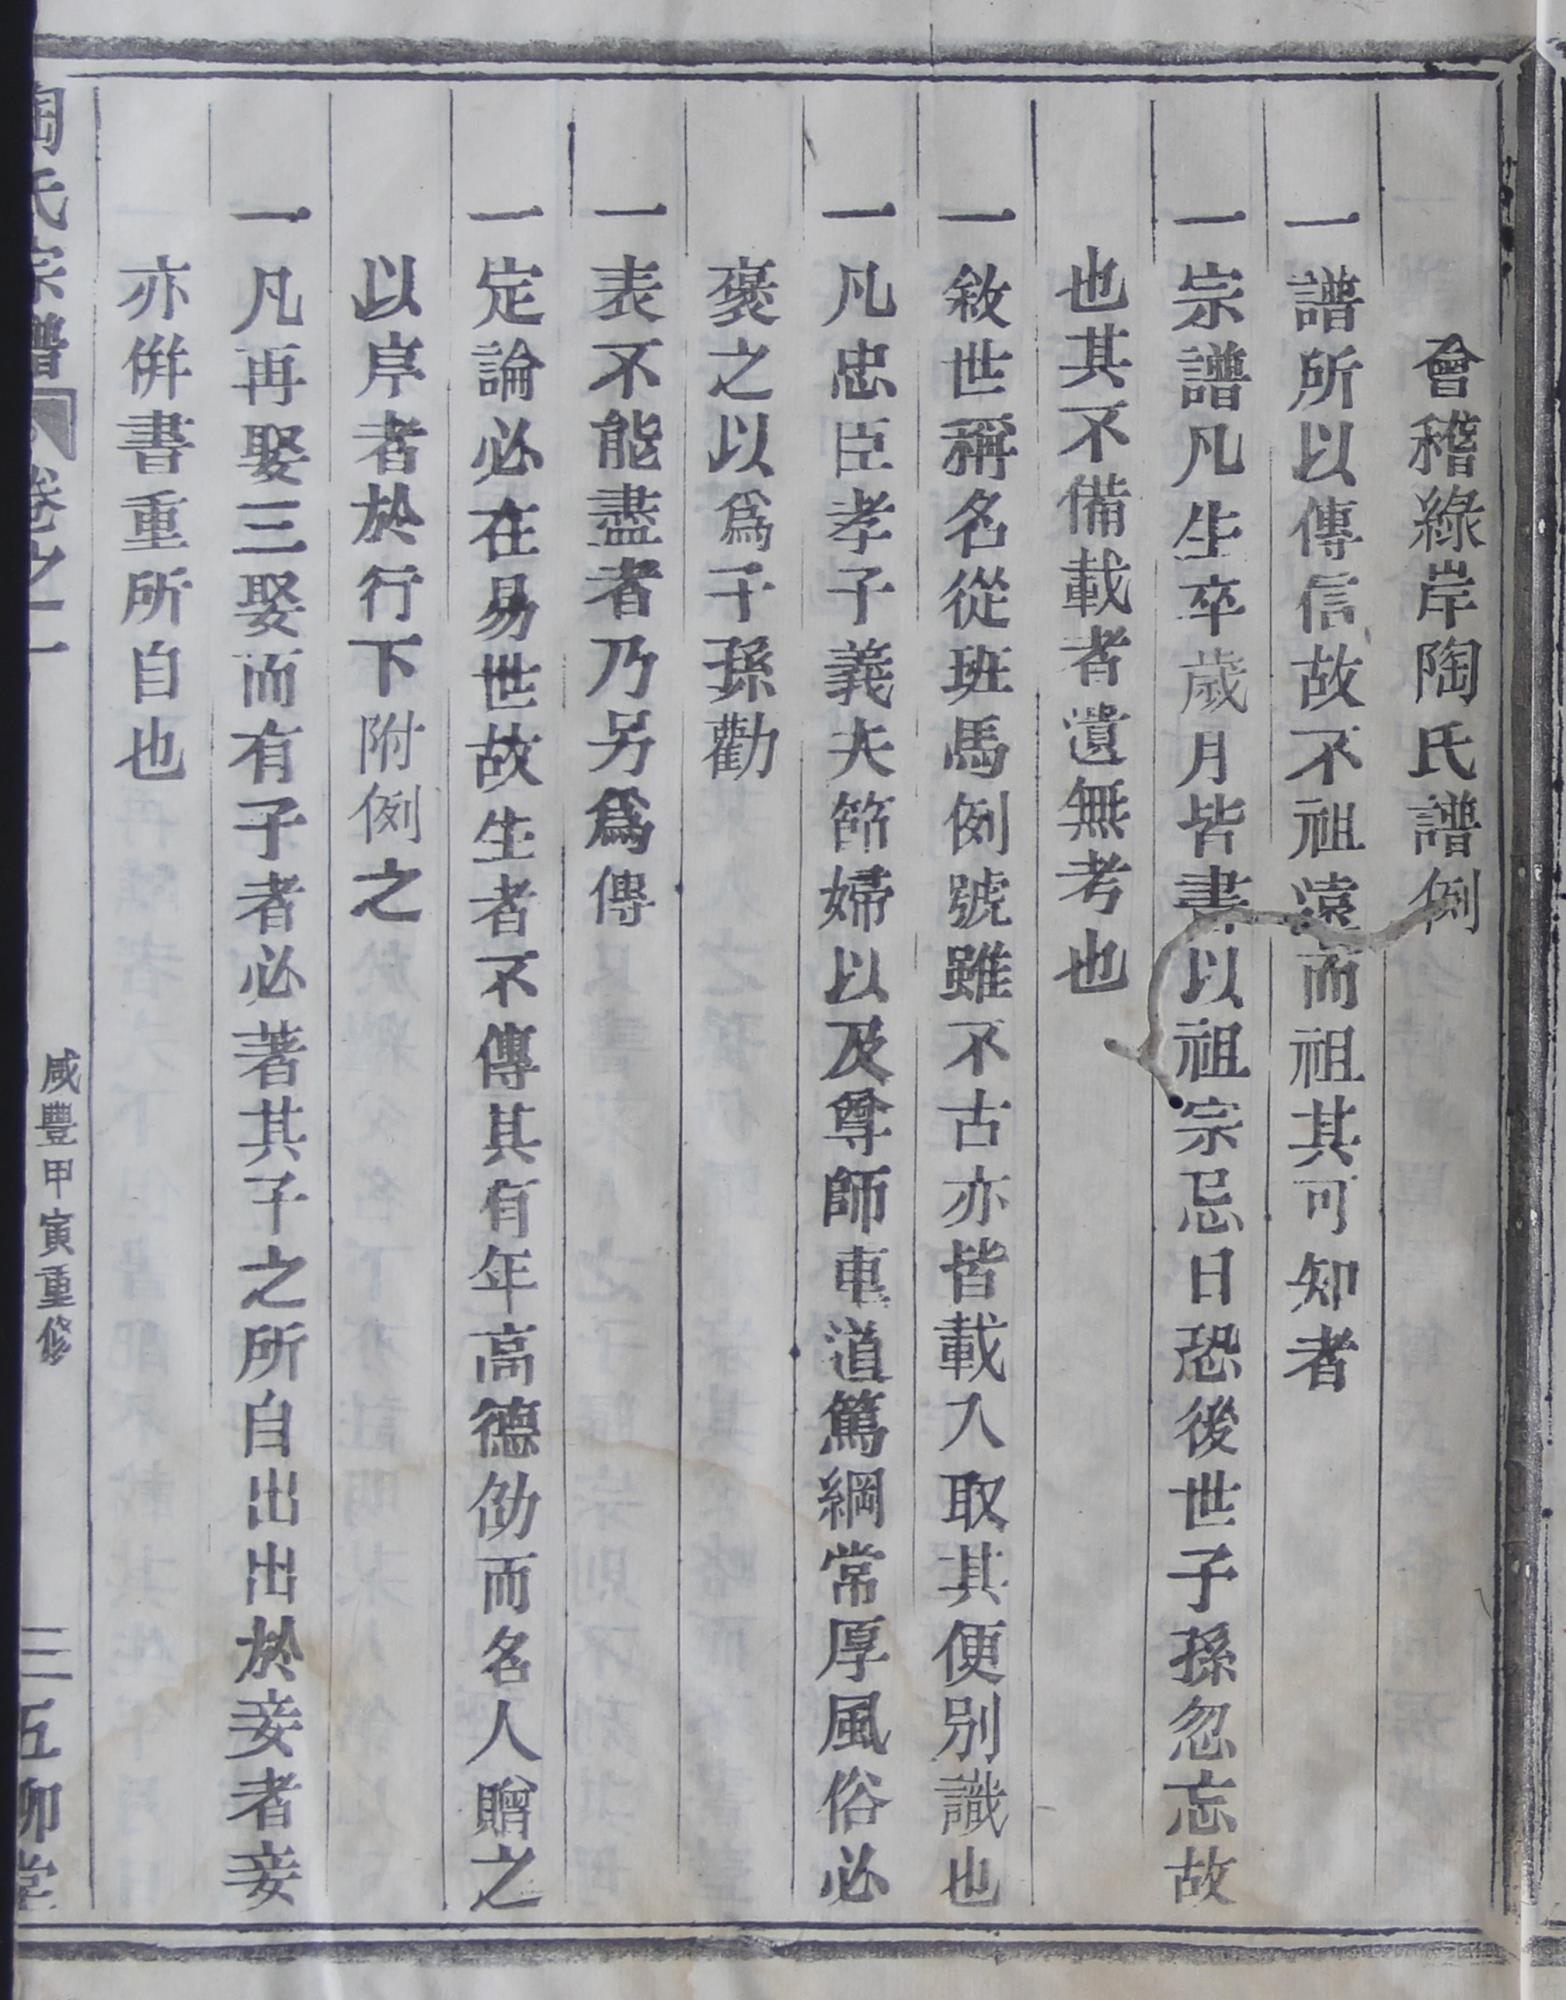 會稽綠岸陶氏譜例
一譜所以傳信故不祖遠而祖其可知者
一宗譜凡生卒歲月皆書以祖宗忌日恐後世子孫忽忘故
也其不備載者遺無考也
一敘世稱名從班馬例號雖不古亦皆載入取其便別識也
一凡忠臣孝子義夫節婦以及尊師重道篤綱常厚風俗必
褒之以爲子孫勸
一表不能盡者乃另爲傳
一定論必在易世故生者不傳其有年高德劭而名人贈之
以序者於行下附例之
一凡再娶三娶而有子者必著其子之所自出出於妾者妾
亦併書重所自也
陶氏宗譜 卷之一 咸豐甲寅重修 三 五柳堂